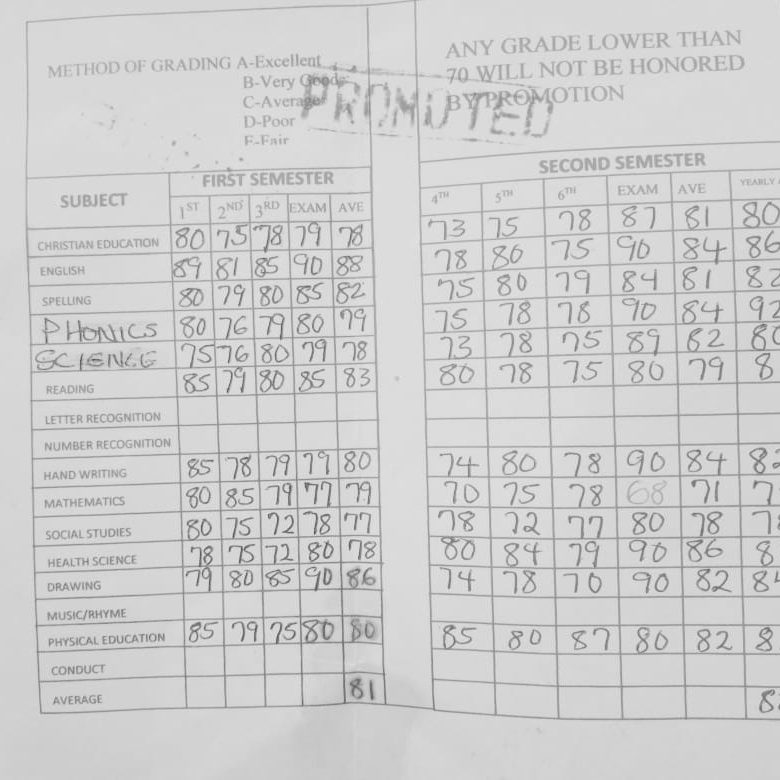 METHOD OF GRADING A-Excellent
B-Very Good
C-Average
D-Poor
F-Fair
ANY GRADE LOWER THAN
70 WILL NOT BE HONORED
BY PROMOTION
PROMOTED
SUBJECT FIRST SEMESTER SECOND SEMESTER
1ST 2ND 3RD EXAM AVE 4TH 5TH 6TH EXAM AVE YEARLY
CHRISTIAN EDUCATION 80 75 78 79 78 73 75 78 87 81 80
ENGLISH 89 81 85 90 88 78 80 75 90 84 86
SPELLING 80 79 80 85 82 75 80 79 84 81 82
PHONICS 80 76 79 80 79 75 78 78 90 84 92
SCIENCE 75 76 80 79 78 73 78 75 89 82 80
READING 85 79 80 85 83 80 78 75 80 79 8
LETTER RECOGNITION
NUMBER RECOGNITION
HAND WRITING 85 78 79 79 80 74 80 78 90 84 82
MATHEMATICS 80 85 79 77 79 70 75 78 68 71 7
SOCIAL STUDIES 80 75 72 78 77 78 72 77 80 78 78
HEALTH SCIENCE 78 75 72 80 78 80 84 79 90 86 8
DRAWING 79 80 85 90 86 74 78 70 90 82 84
MUSIC/RHYME
PHYSICAL EDUCATION 85 79 75 80 80 85 80 87 80 82 8
CONDUCT
AVERAGE 81 8